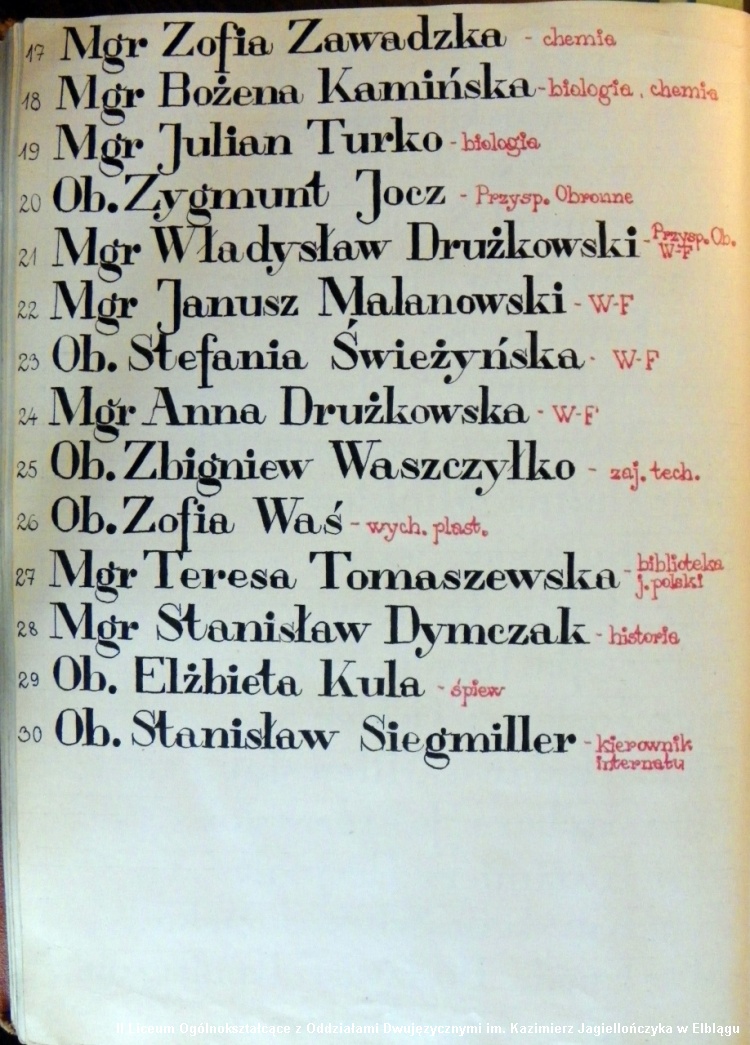 17 Mgr Zofia Zawadzka - chemia
18 Mgr Bożena Kamińska - biologia, chemia
19 Mgr Julian Turko - biologia
20 Ob. Zygmunt Jocz - Przysp. Obronne
21 Mgr Władysław Drużkowski - Przysp. Ob.
W-F
22 Mgr Janusz Malanowski - W-F
23 Ob. Stefania Świeżyńska - W-F
24 Mgr Anna Drużkowska - W-F
25 Ob. Zbigniew Waszczyłko - zaj. tech.
26 Ob. Zofia Waś - wych. plast.
27 Mgr Teresa Tomaszewska - biblioteka
j. polski
28 Mgr Stanisław Dymczak - historia
29 Ob. Elżbieta Kula - śpiew
30 Ob. Stanisław Siegmiller - kierownik
internatu
II Liceum Ogólnokształcące z Oddziałami Dwujęzycznymi im. Kazimierz Jagiellończyka w Elblągu